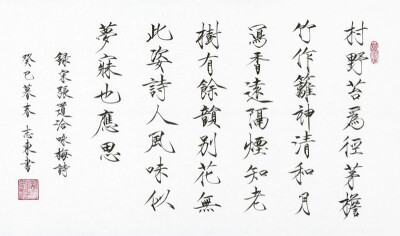 村野苔為徑茅檐
竹作籬神清和月
寫香遠隔煙知老
樹有餘韻別花無
此姿詩人風味似
夢寐也應思
錄宋張道洽咏梅詩
癸巳暮春志東書